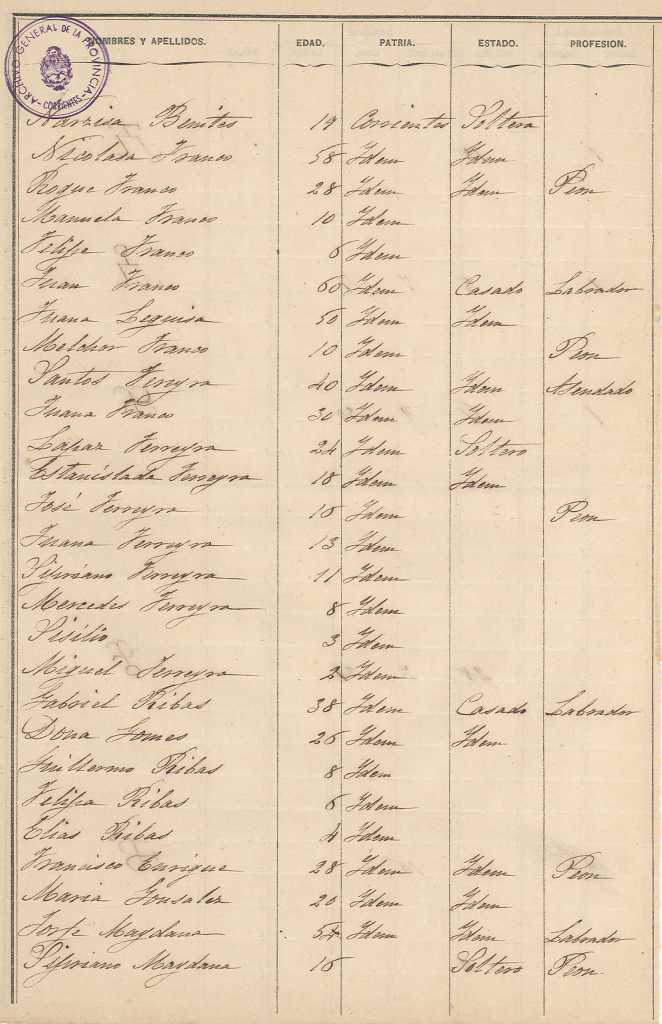 NOMBRES Y APELLIDOS. EDAD. PATRIA. ESTADO. PROFESION.
ARCHIVO GENERAL DE LA PROVINCIA - CORRIENTES -
Narzisa Benites 19 Corrientes Soltera
Nicolasa Franco 58 Idem Idem
Roque Franco 28 Idem Idem Peon
Manuela Franco 10 Idem
Felipe Franco 6 Idem
Juan Franco 60 Idem Casado Labrador
Juana Leguisa 50 Idem Idem
Melchor Franco 10 Idem Peon
Santos Ferreyra 40 Idem Idem Asendado
Juana Franco 30 Idem Idem
Lapaz Ferreyra 24 Idem Soltero
Estanislada Ferreyra 18 Idem Idem
José Ferreyra 18 Idem Peon
Juana Ferreyra 13 Idem
Sipriano Ferreyra 11 Idem
Mercedes Ferreyra 8 Idem
Sisilio 3 Idem
Miguel Ferreyra 2 Idem
Gabriel Ribas 38 Idem Casado Labrador
Dona Gomes 26 Idem Idem
Guillermo Ribas 8 Idem
Felipa Ribas 6 Idem
Elias Ribas 4 Idem
Francisco Enrique 28 Idem Idem Peon
Maria Gonsalez 20 Idem Idem
Jorje Maydana 54 Idem Idem Labrador
Sipriano Maydana 16 Soltero Peon